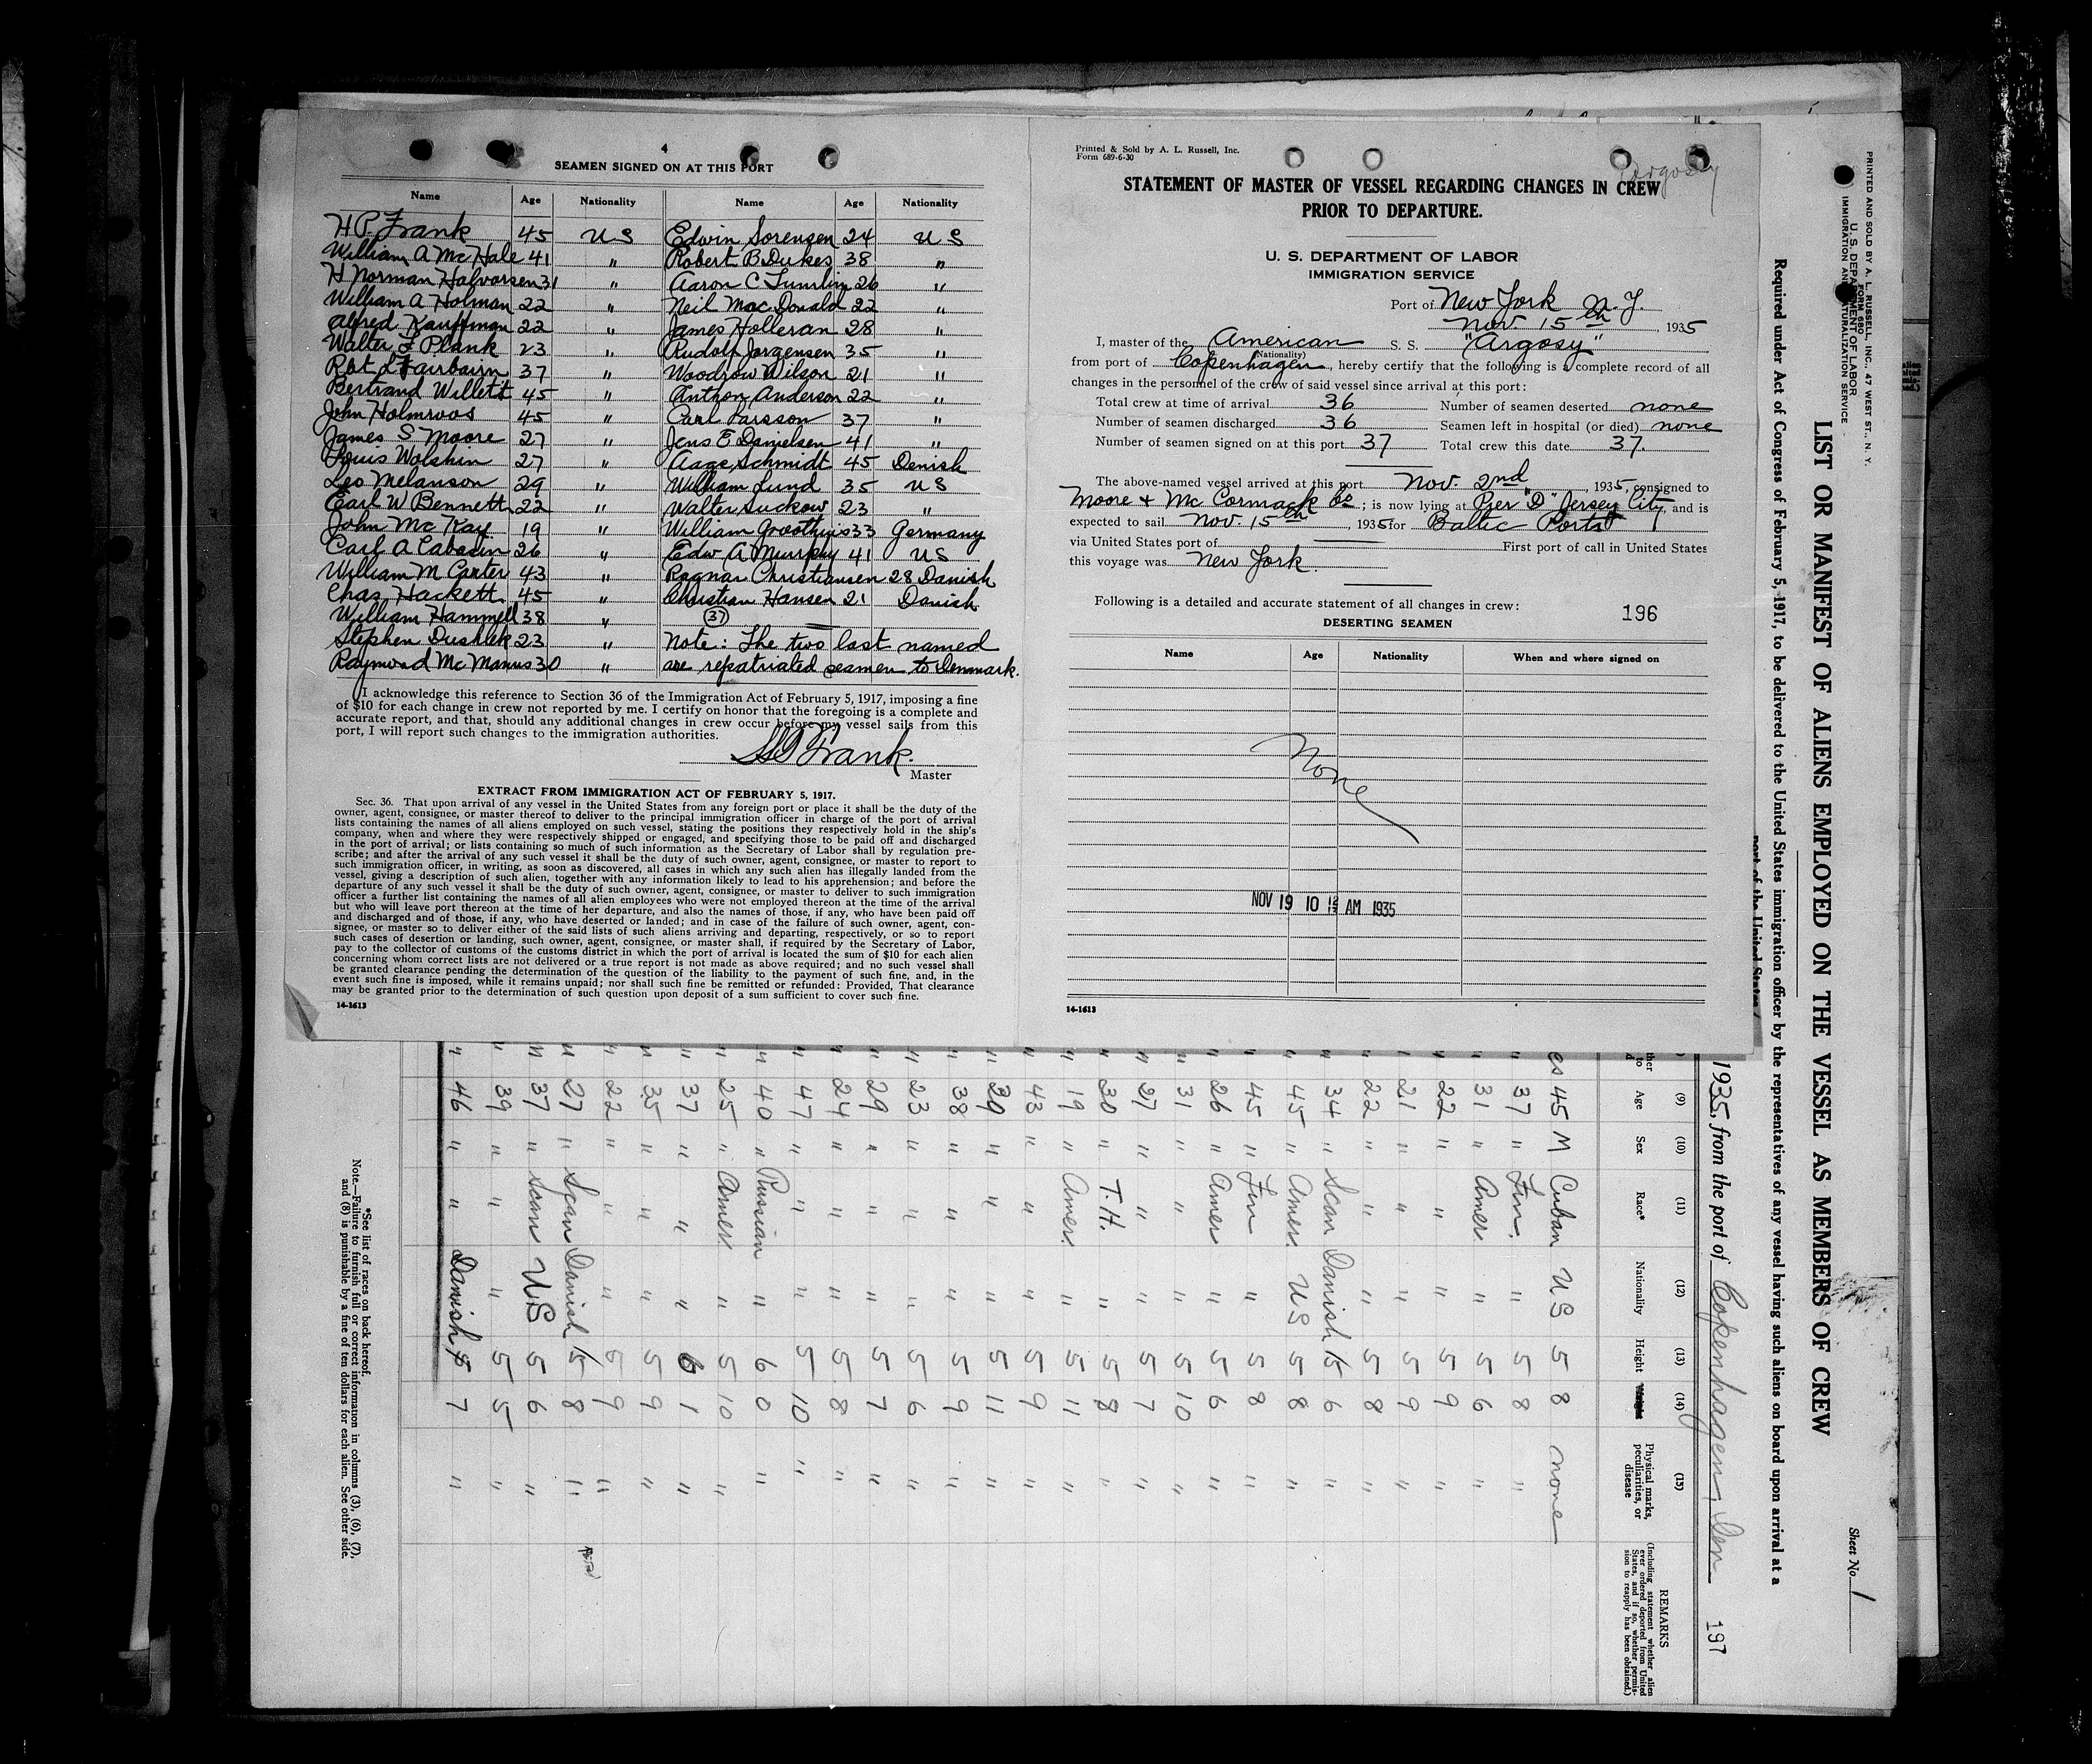 4
SEAMEN SIGNED ON AT THIS PORT
Name Age Nationality Name Age Nationality
H P. Frank 45 U S Edwin Sorensen 24 U S
William A Mc Hale 41 " Robert B Dukes 38 "
H Norman Halvorsen 31 " Aaron C Tumlin 26 "
William A Holman 22 " Neil Mac Donald 22 "
Alfred Kauffman 22 " James Holleran 28 "
Walter F Plank 23 " Rudolf Jorgensen 35 "
Rbt L Fairbairn 37 " Woodrow Wilson 21 "
Bertrand Willett 45 " Anthon Anderson 22 "
John Holmroos 45 " Carl Larsson 37 "
James S Moore 27 " Jens E Danielsen 41 "
Louis Wolshin 27 " Aage Schmidt 45 Denish
Leo Melanson 29 " William Lund 35 U S
Earl W Bennett 22 " Walter Suckow 23 "
John Mc Kay 19 " William 33 Germany
Carl A 26 " Edw A Murphy 41 US
William M Carter 43 " Ragnar Christiansen 28 Danish
Chas Hackett 45 " Christian Hansen 21 Danish
William Hammell 38 " 37
Stephen Dushlek 23 " Note: The two last named
Raymond Mc Manus 30 " are repatriated seamen to Denmark.
I acknowledge this reference to Section 36 of the Immigration Act of February 5, 1917, imposing a fine
of $10 for each change in crew not reported by me. I certify on honor that the foregoing is a complete and
accurate report, and that, should any additional changes in crew occur before my vessel sails from this
port, I will report such changes to the immigration authorities.
H P Frank.
Master
EXTRACT FROM IMMIGRATION ACT OF FEBRUARY 5, 1917.
Sec. 36. That upon arrival of any vessel in the United States from any foreign port or place it shall be the duty of the
owner, agent, consignee, or master thereof to deliver to the principal immigration officer in charge of the port of arrival
lists containing the names of all aliens employed on such vessel, stating the positions they respectively hold in the ship's
company, when and where they were respectively shipped or engaged, and specifying those to be paid off and discharged
in the port of arrival; or lists containing so much of such information as the Secretary of Labor shall by regulation pre-
scribe; and after the arrival of any such vessel it shall be the duty of such owner, agent, consignee, or master to report to
such immigration officer, in writing, as soon as discovered, all cases in which any such alien has illegally landed from the
vessel, giving a description of such alien, together with any information likely to lead to his apprehension; and before the
departure of any such vessel it shall be the duty of such owner, agent, consignee, or master to deliver to such immigration
officer a further list containing the names of all alien employees who were not employed thereon at the time of the arrival
but who will leave port thereon at the time of her departure, and also the names of those, if any, who have been paid off
and discharged and of those, if any, who have deserted or landed; and in case of the failure of such owner, agent, con-
signee, or master so to deliver either of the said lists of such aliens arriving and departing, respectively, or so to report
such cases of desertion or landing, such owner, agent, consignee, or master shall, if required by the Secretary of Labor,
pay to the collector of customs of the customs district in which the port of arrival is located the sum of $10 for each alien
concerning whom correct lists are not delivered or a true report is not made as above required; and no such vessel shall
be granted clearance pending the determination of the question of the liability to the payment of such fine, and, in the
event such fine is imposed, while it remains unpaid; nor shall such fine be remitted or refunded: Provided, That clearance
may be granted prior to the determination of such question upon deposit of a sum sufficient to cover such fine.
14-1613
Printed & Sold by A. L. Russell, Inc.
Form 689-6-30
Argosy
STATEMENT OF MASTER OF VESSEL REGARDING CHANGES IN CREW
PRIOR TO DEPARTURE.
U. S. DEPARTMENT OF LABOR
IMMIGRATION SERVICE
Port of New York N.Y.
Nov. 15th, 1935
I, master of the American S. S. "Argosy"
(Nationality)
from port of Copenhagen, hereby certify that the following is a complete record of all
changes in the personnel of the crew of said vessel since arrival at this port:
Total crew at time of arrival 36 Number of seamen deserted none
Number of seamen discharged 36 Seamen left in hospital (or died) none
Number of seamen signed on at this port 37 Total crew this date 37.
The above-named vessel arrived at this port Nov. 2nd, 1935, consigned to
Moore & Mc Cormack Co; is now lying at Pier "D" Jersey City, and is
expected to sail Nov. 15th, 1935 for Baltic Ports
via United States port of First port of call in United States
this voyage was New York.
Following is a detailed and accurate statement of all changes in crew: 196
DESERTING SEAMEN
Name Age Nationality When and where signed on
None
NOV 19 10 12 AM 1935
14-1613
PRINTED AND SOLD BY A. L. RUSSELL, INC., 47 WEST ST., N. Y.
FORM 680
U. S. DEPARTMENT OF LABOR
IMMIGRATION AND NATURALIZATION SERVICE
Sheet No. 1
LIST OR MANIFEST OF ALIENS EMPLOYED ON THE VESSEL AS MEMBERS OF CREW
Required under Act of Congress of February 5, 1917, to be delivered to the United States immigration officer by the representatives of any vessel having such aliens on board upon arrival at a
port of the United States
1935, from the port of Copenhagen, Den 197
(9) (10) (11) (12) (13) (14) (15) REMARKS
Age Sex Race* Nationality Height Weight Physical marks, peculiarities, or disease (Including statement whether alien ever ordered deported from United States, and if so, whether permission to reapply has been obtained.)
es 45 M Cuban U S 5 8 none
" 37 " Fin. " 5 8 "
" 31 " Amer " 5 6 "
22 " " " 5 9 "
21 " " " 5 9 "
22 " " " 5 8 "
34 " Scan Danish 5 6 "
45 " Amer U S 5 8 "
45 " Fin " 5 8 "
26 " Amer " 5 6 "
" 31 " " " 5 10 "
" 27 " " " 5 7 "
" 30 " T.H. " 5 8 "
" 19 " Amer. " 5 11 "
" 43 " " " 5 9 "
" 30 " " " 5 11 "
" 38 " " " 5 9 "
" 23 " " " 5 6 "
" 29 " " " 5 7 "
" 24 " " " 5 8 "
" 47 " " " 5 10 "
" 40 " Russian " 6 0 "
" 25 " Amer " 5 10 "
" 37 " " " 6 1 "
" 35 " " " 5 9 "
" 22 " " " 5 9 "
" 27 " Scan Danish 5 8 "
" 37 " Scan US 5 6 "
" 39 " " " 5 5 "
" 46 " " Danish 5 7 "
*See list of races on back hereof.
Note.—Failure to furnish full or correct information in columns (3), (6), (7),
and (8) is punishable by a fine of ten dollars for each alien. See other side.